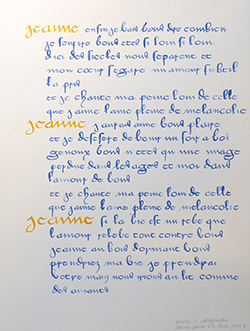 jeanne enfin je vais vous dire combien
je soupire vous etes si loin si loin
d'ici des siecles nous separent et
mon cœur s'egare un amour subtil
l'a pris
et je chante ma peine loin de celle
que j'aime l'ame pleine de melancolie
jeanne j'aurais aime vous plaire
et je desespere de vous un soir a vos
genoux vous n'etes qu'une image
perdue dans les ages et moi dans
l'amour de vous
et je chante ma peine loin de celle
que j'aime l'ame pleine de melancolie
jeanne si la vie est un reve que
l'amour releve tout contre vous
jeanne au bois dormant vous
prendrez ma vie je prendrai
votre main nous irons au lit comme
des amants